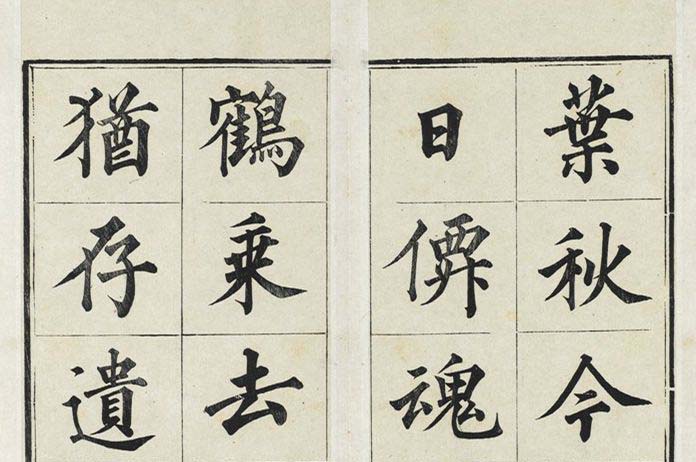 葉秋今
日僊魂
鶴乗去
猶存遺